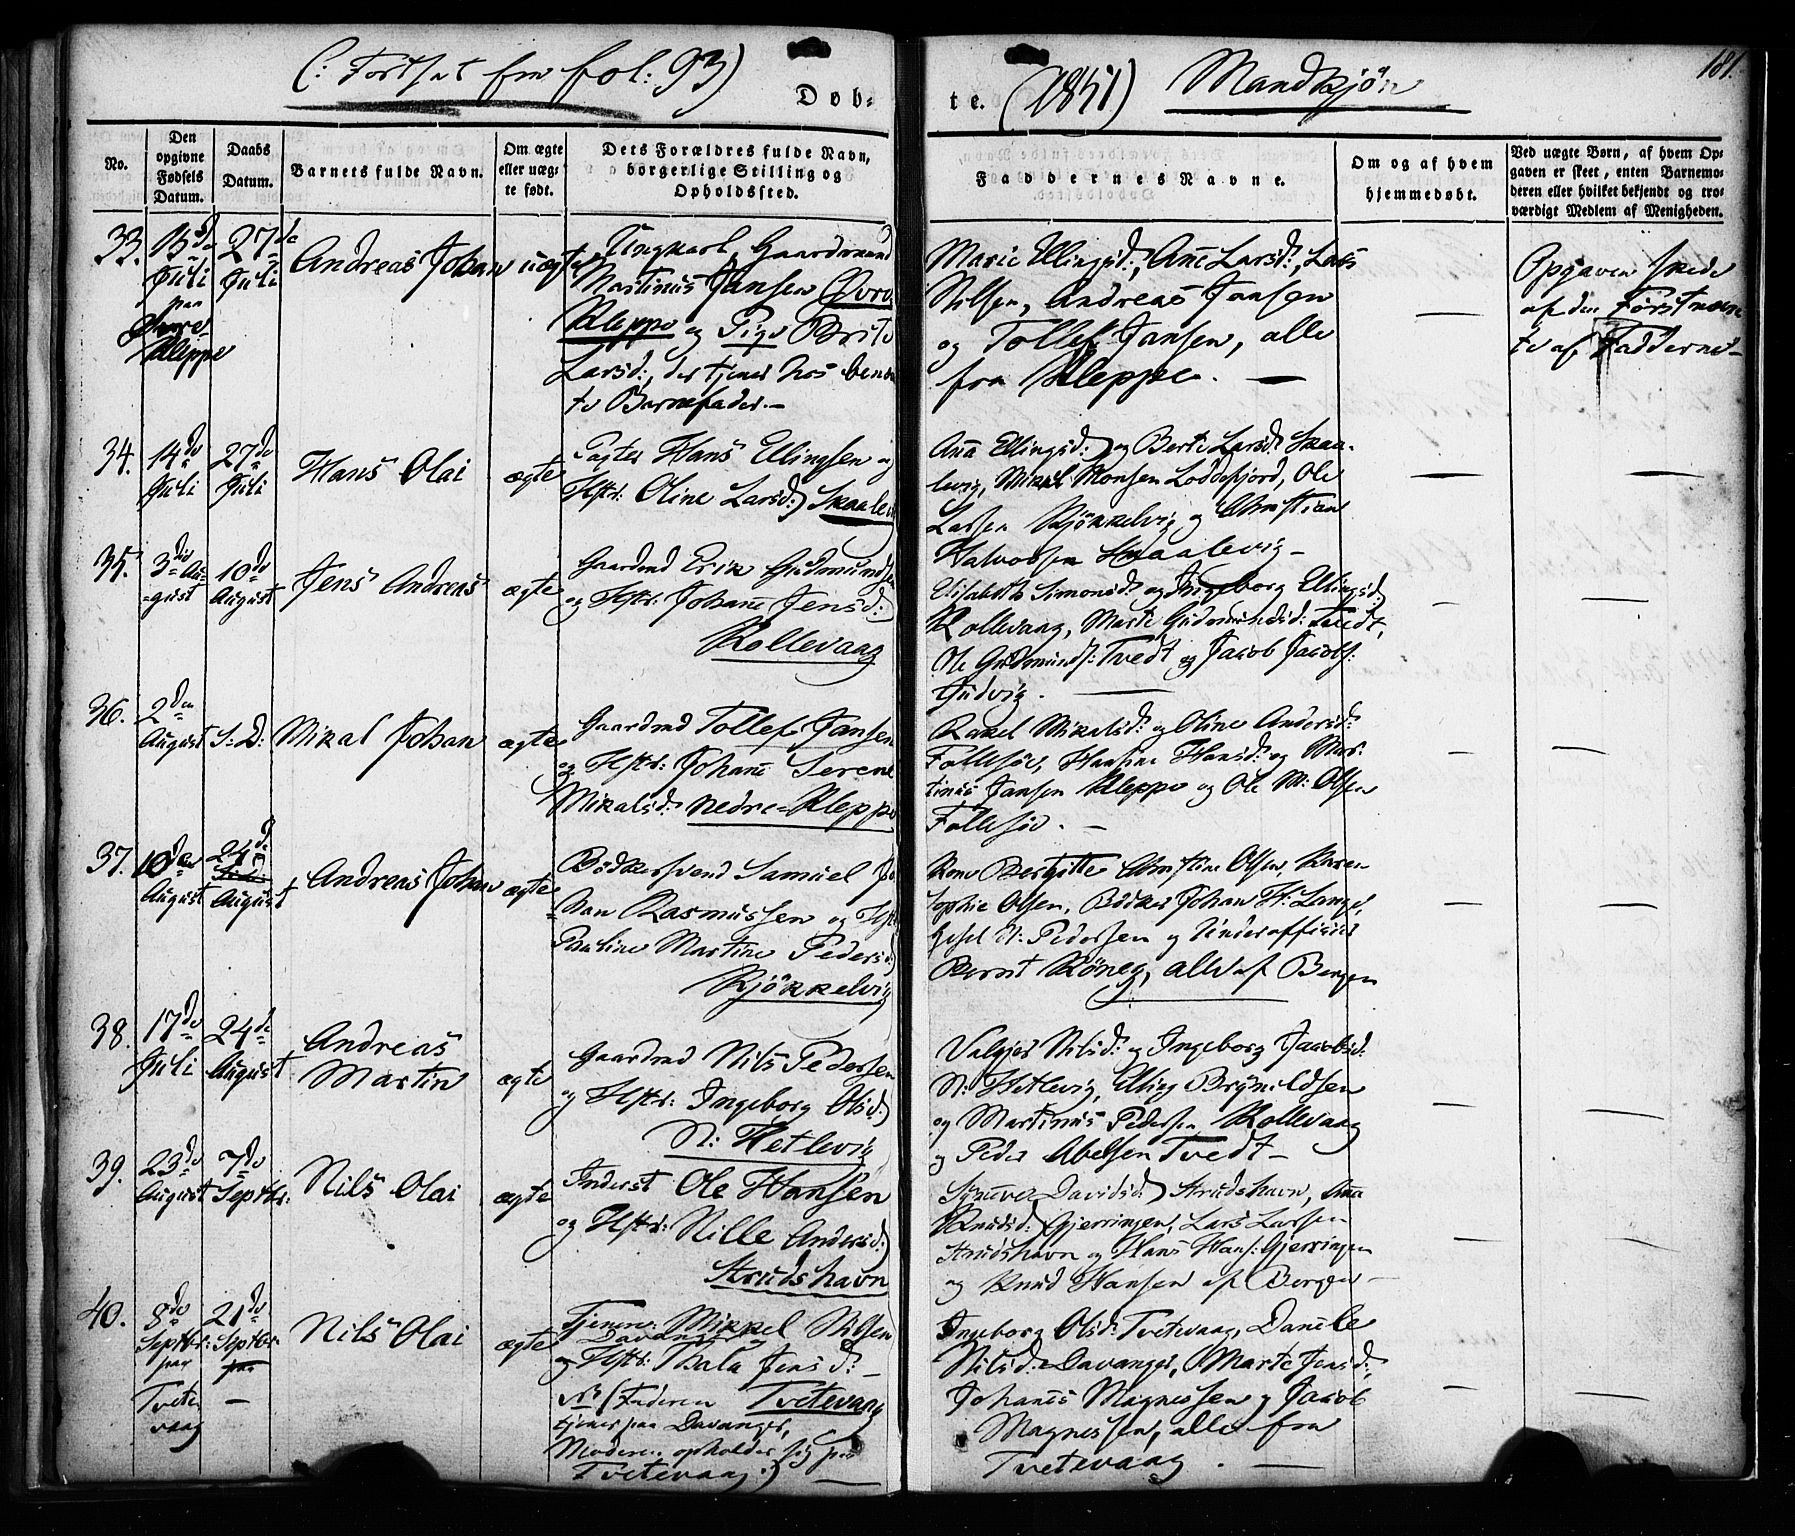 (: Fortsat fra fol: 93)
Døb-
te. (1851) Mandkjøn
181.
No.
Den opgivne Fødsels Datum.
Daabs Datum.
Barnets fulde Navn.
Om ægte eller uægte født.
Dets Forældres fulde Navn, borgerlige Stilling og Opholdssted.
Faddernes Navne.
Om og af hvem hjemmedøbt.
Ved uægte Børn, af hvem Opgaven er skeet, enten Barnemoderen eller hvilket bekjendt og troværdigt Medlem af Menigheden.
33.
Juli
paa
Kleppe
27de
Juli
Andreas Johan
uægte
Ungkarl, Gaardmand
Martinus Jansen Øvre
Kleppe og Pige Brite
Larsd:, der tjener hos benæv
te Barnefader.-
Marie Ellingsd:, Ane Larsd:, Lars
Nilsen, Andreas Jansen
og Tollef Jansen, alle
fra Kleppe. —
Opgaven skede
af den Førstnævn
te af Fadderne-
34.
14de
Juli
27de
Juli
Hans Olai
ægte
Hans Ellingsen og
Hstr: Oline Larsd:) Skaalev
Ana Ellingsd:) og Berte Larsd: Skaa-
levig, Mikel Monsen Loddefjord, Ole
Larsen Kjøkkelvig og Christian
Halvorsen Skaalevig -
35.
3die Au-
gust
10de
August
Jens Andreas
ægte
Gaardmd Erik Gudmundsen
og Hstr: Johane Jensd:
Rollevaag
Elisabeth Simonsd: og Ingeborg Ellingsd:
Rollevaag, Marte Gudmundsd: Tvedt,
Ole Gudmunds: Tvedt og Jacob Jacobs:
36.
2den
August
S: D:
Mikal Johan
ægte
Gaardmd Tollef Jansen
og Hstr: Johane Serene
Mikalsd: nedre-Kleppe
Rakel Mikalsd: og Oline Andersd:
Follesøe, Hansine Hansd: og Mar-
tinus Jansen Kleppe og Ole M: Olsen
Follesøe. -
37.
10den
August
24d:
August
Andreas Johan
ægte
Bødkersvend Samuel Jo
han Rasmussen og Hst
Pauline Martine Pedersd)
Kjøkkelvig
Kone Bergitte Christine Olsen, Karen
Sophie Olsen, Bødker Johan H: Lange,
Pedersen og Underofficier
Bernt König, alle af Bergen
38.
17de
Juli
24de
August
Andreas
Martin
ægte
Gaardmd Nils Pedersen
og Hstr: Ingeborg Olsd:)
N: Hetlevig
Valgjer Nilsd: og Ingeborg Jacobsd:
N: Hetlevig, Elling Brynildsen
og Martinus Pedersen Rollevaag
og Peder Abelsen Tvedt -
39.
23de
August
7de
Septbr:
Nils Olai
ægte
Inderst Ole Hansen
og Hstr: Nille Andersd:)
Strudshavn
Synneve Davidsd:) Strudshavn, Ana
Knudsd: Gjerringen, Lars Larsen
Strudshavn og Hans Hans: Gjerringen
og Knud Hansen af Bergen -
40.
8de
Septbr:
paa
Tvete-
vaag
21de
Septbr:
paa
—
Nils Olai
ægte
Tjener Mikkel Nilsen
Davanger
og Hstr: Thala Jensd: -
NB (Faderen Tvetevaag
tjener paa Davanger,
Moderen opholder sig paa
Tvetevaag.) —
Ingeborg Olsd: Tvetevaag, Danele
Nilsd: Davanger, Marte Jensd:,
Johanes Magnessen og Jacob
Magnessen, alle fra
Tvetevaag. —